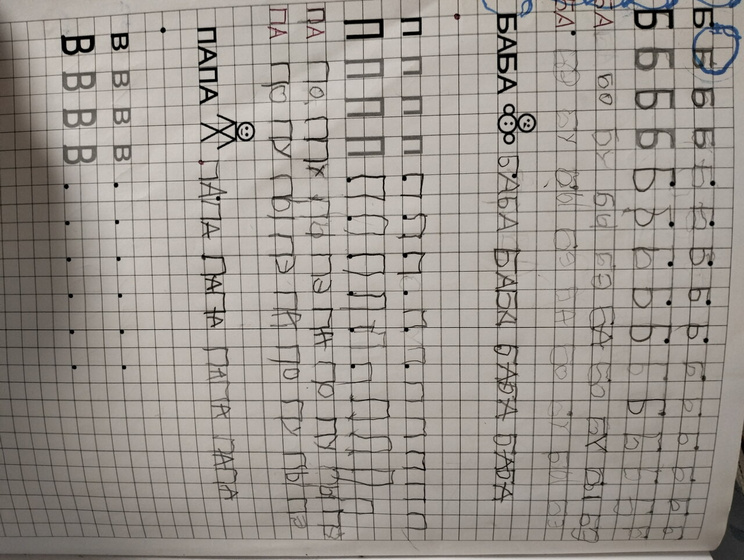 Б Б Б Б Б Б Б Б Б Б Б Б Б Б
Б Б Б Б Б Б Б Б Б Б Б Б
БА БО БУ БЫ БЭ БА БО БУ БЫ БЭ
БА БО БУ БЫ БЭ БА БО БУ БЫ БЭ
БАБА БАБА БАБА БАБА БАБА
П П П П П П П П П П П П П П
П П П П П П П П П П П П П
ПА ПО ПУ ПЫ ПЭ ПА ПО ПУ ПЫ ПЭ
ПА ПО ПУ ПЫ ПЭ ПА ПО ПУ ПЫ ПЭ
ПАПА ПАПА ПАПА ПАПА ПАПА
В В В В
В В В В